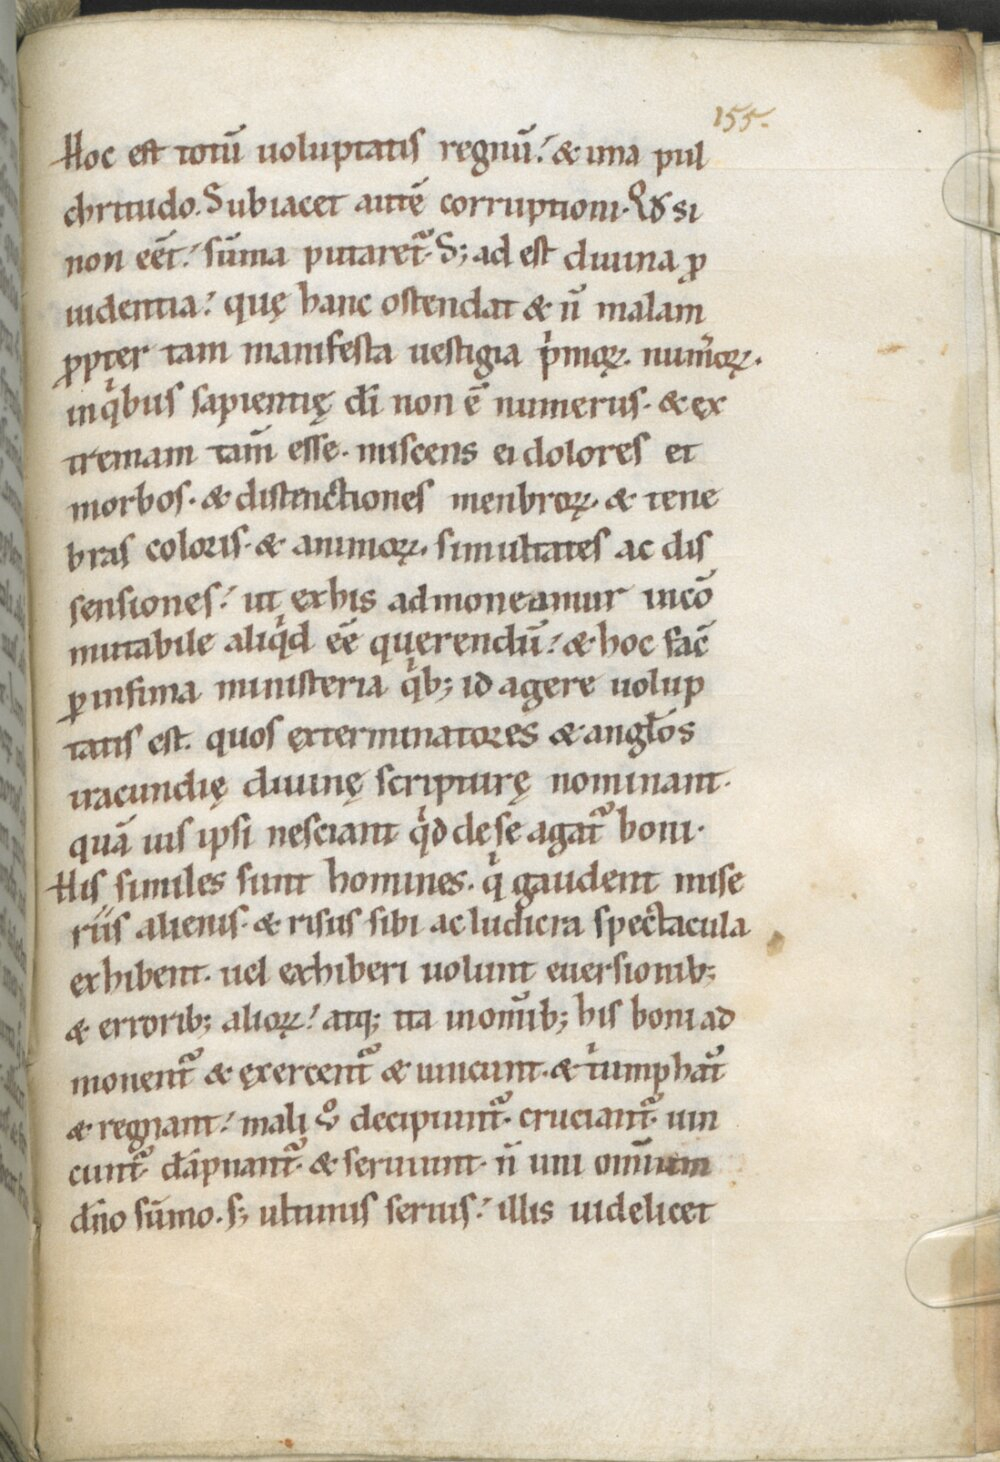 155.
Hoc est totū uoluptatis regnū. & ima pul
chritudo. Subiacet autē corruptioni. Qd si
non eēt. sūma putaretᷣ. S; ad est diuina ꝓ
uidentia. quę hanc ostendat & n̄ malam
ꝓpter tam manifesta uestigia pͥmoꝝ. num̄oꝝ.
inqͥbus sapientię dī non ē numerus. & ex
tremam tam̄ esse. miscens ei dolores et
morbos. & distinctiones menbroꝝ. & tene
bras coloris. & animoꝝ. simultates ac dis
sensiones. ut exhis admoneamur incō
mutabile aliqͥd eē querendū. & hoc fac̄
ꝑ infima ministeria qͥb; id agere uolup
tatis est. quos exterminatores & angłos
iracundię diuinę scripturę nominant.
quā uis ipsi nesciant qͥd de se agatᷣ boni.
His similes sunt homines. qͥ gaudent mise
riis alienis. & risus sibi ac ludicra spectacula
exhibent. uel exhiberi uolunt euersionib;
& errorib; alioꝝ. atq; ita inom̄ib; his boni ad
monentᷣ & exercentᷣ & uincunt. & tͥumphātᷣ
& regnant. mali ỽ decipiuntᷣ. cruciantᷣ. uin
cuntᷣ. dāpnantᷣ. & seruiunt. n̄ uni omnium
dn̄o sūmo. s; ultimis seruis. illis uidelicet